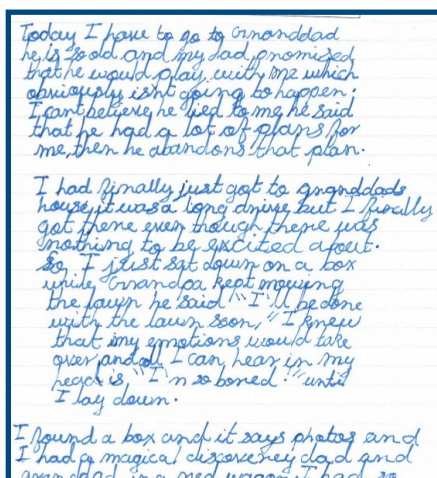 Today I have to go to Granddad
he is good and my dad promised
that he would play with me which
obviously isnt going to happen.
I cant believe he lied to me he said
that he had a lot of plans for
me, then he abandons that plan.
I had finally just got to granddads
house, it was a long drive but I finally
got there even though there was
nothing to be excited about.
So I just sat down on a box
while Grandpa kept mowing
the lawn he said "I'll be done
with the lawn soon," I knew
that my emotions would take
over and all I can hear in my
head is "I'm so bored!" until
I lay down.
I found a box and it says photos and
I had a magical discoverey dad and
grandad in a red wagon. I had so